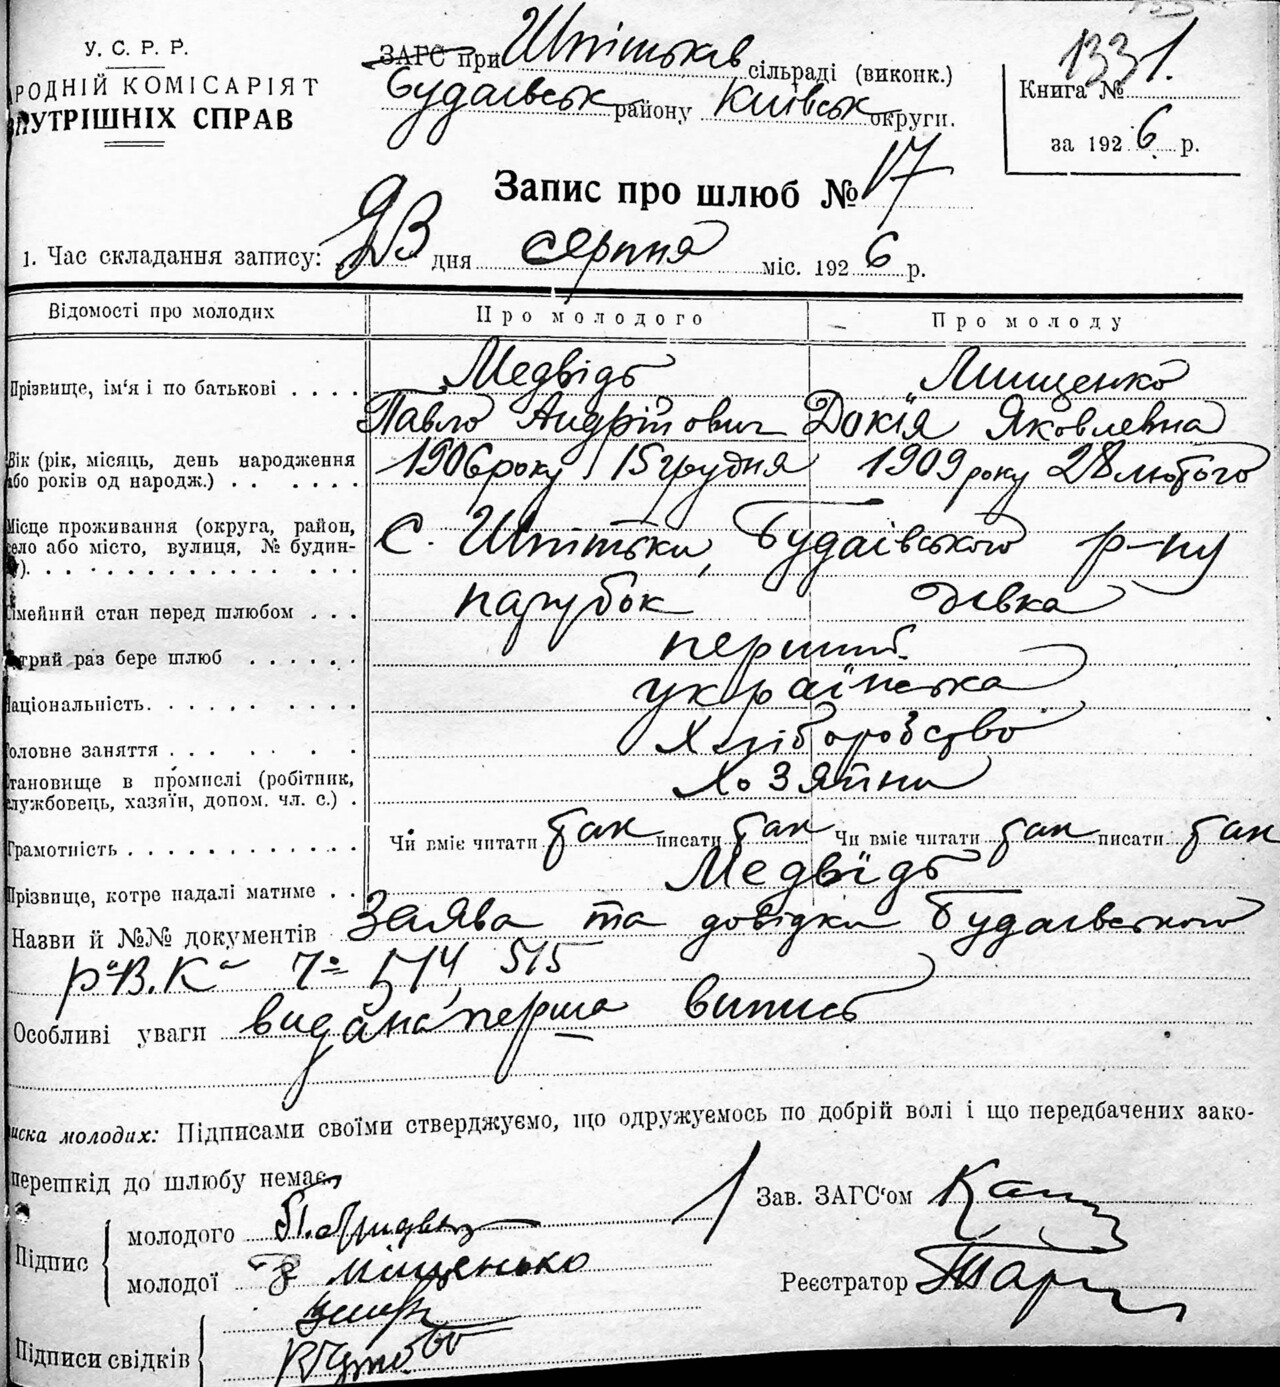 У. С. Р. Р.
РОДНІЙ КОМІСАРІЯТ
УТРІШНІХ СПРАВ
ЗАГС при Шпітьків сільраді (виконк.)
Будаївськ району Київськ округи.
1331.
Книга №
за 1926 р.
Запис про шлюб № 17
1. Час складання запису: 23 дня серпня міс. 1926 р.
Відомості про молодих Про молодого Про молоду
Прізвище, ім'я і по батькові . . . . Медвідь Мищенко
Павло Андрійович Докія Яковлевна
Вік (рік, місяць, день народження 1906 року 15 грудня 1909 року 28 лютого
або років од народж.) . . . . . .
Місце проживання (округа, район, с. Шпітьки, Будаівського р-ну
село або місто, вулиця, № будин-
Сімейний стан перед шлюбом . . . парубок дівка
котрий раз бере шлюб . . . . . . перший
Національність. . . . . . . . . . українська
Головне заняття . . . . . . . Хліборобство
Становище в промислі (робітник, Хозяйни
службовець, хазяїн, допом. чл. с.) .
Грамотність . . . . . . . . . . . . Чи вміє читати так писати так Чи вміє читати так писати так
Прізвище, котре надалі матиме . . Медвідь
Назви й №№ документів Заява та довідки Будаівського
Р"В.К" 514, 515
Особливі уваги видана перша випись
иска молодих: Підписами своїми стверджуємо, що одружуємось по добрій волі і що передбачених зако-
перешкід до шлюбу немає.
Зав. ЗАГС'ом
Підпис молодого
молодої Мищенько
Реєстратор
Підписи свідків